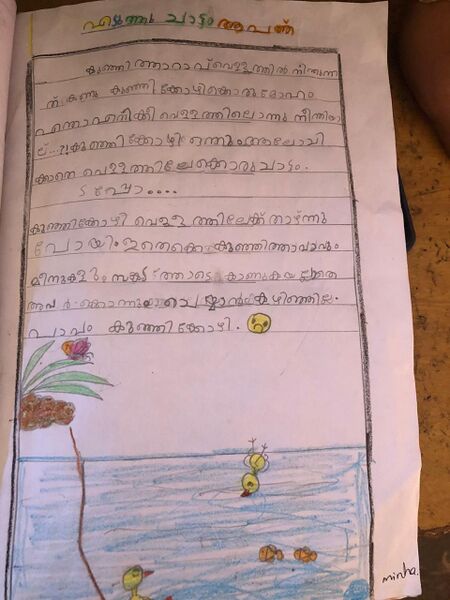 എടുത്തു ചാട്ടം ആപത്ത്
കുഞ്ഞിത്താറാവ് വെള്ളത്തിൽ നീന്തുന്ന
ത് കണ്ടു കുഞ്ഞി ക്കോഴിക്കൊരു മോഹം
എന്താ എനിക്കീ വെള്ളത്തിലൊന്നു നീന്തിയാ
ല്...?! കുഞ്ഞി ക്കോഴി ഒന്നും ആലോചി
ക്കാതെ വെള്ളത്തിലേക്കൊരു ചാട്ടം.
ടപ്പോ....
കുഞ്ഞിക്കോഴി വെള്ള ത്തിലേക്ക് താഴ്ന്നു
പോയി. ഇതൊക്കെ കുഞ്ഞിത്താറാവും
മീനുകളും സങ്കട ത്തോടെ കാണുകയല്ലാതെ
അവർക്കൊന്നും ചെയ്യാൻ കഴിഞ്ഞില്ല.
പാവം കുഞ്ഞി ക്കോഴി.
minha.